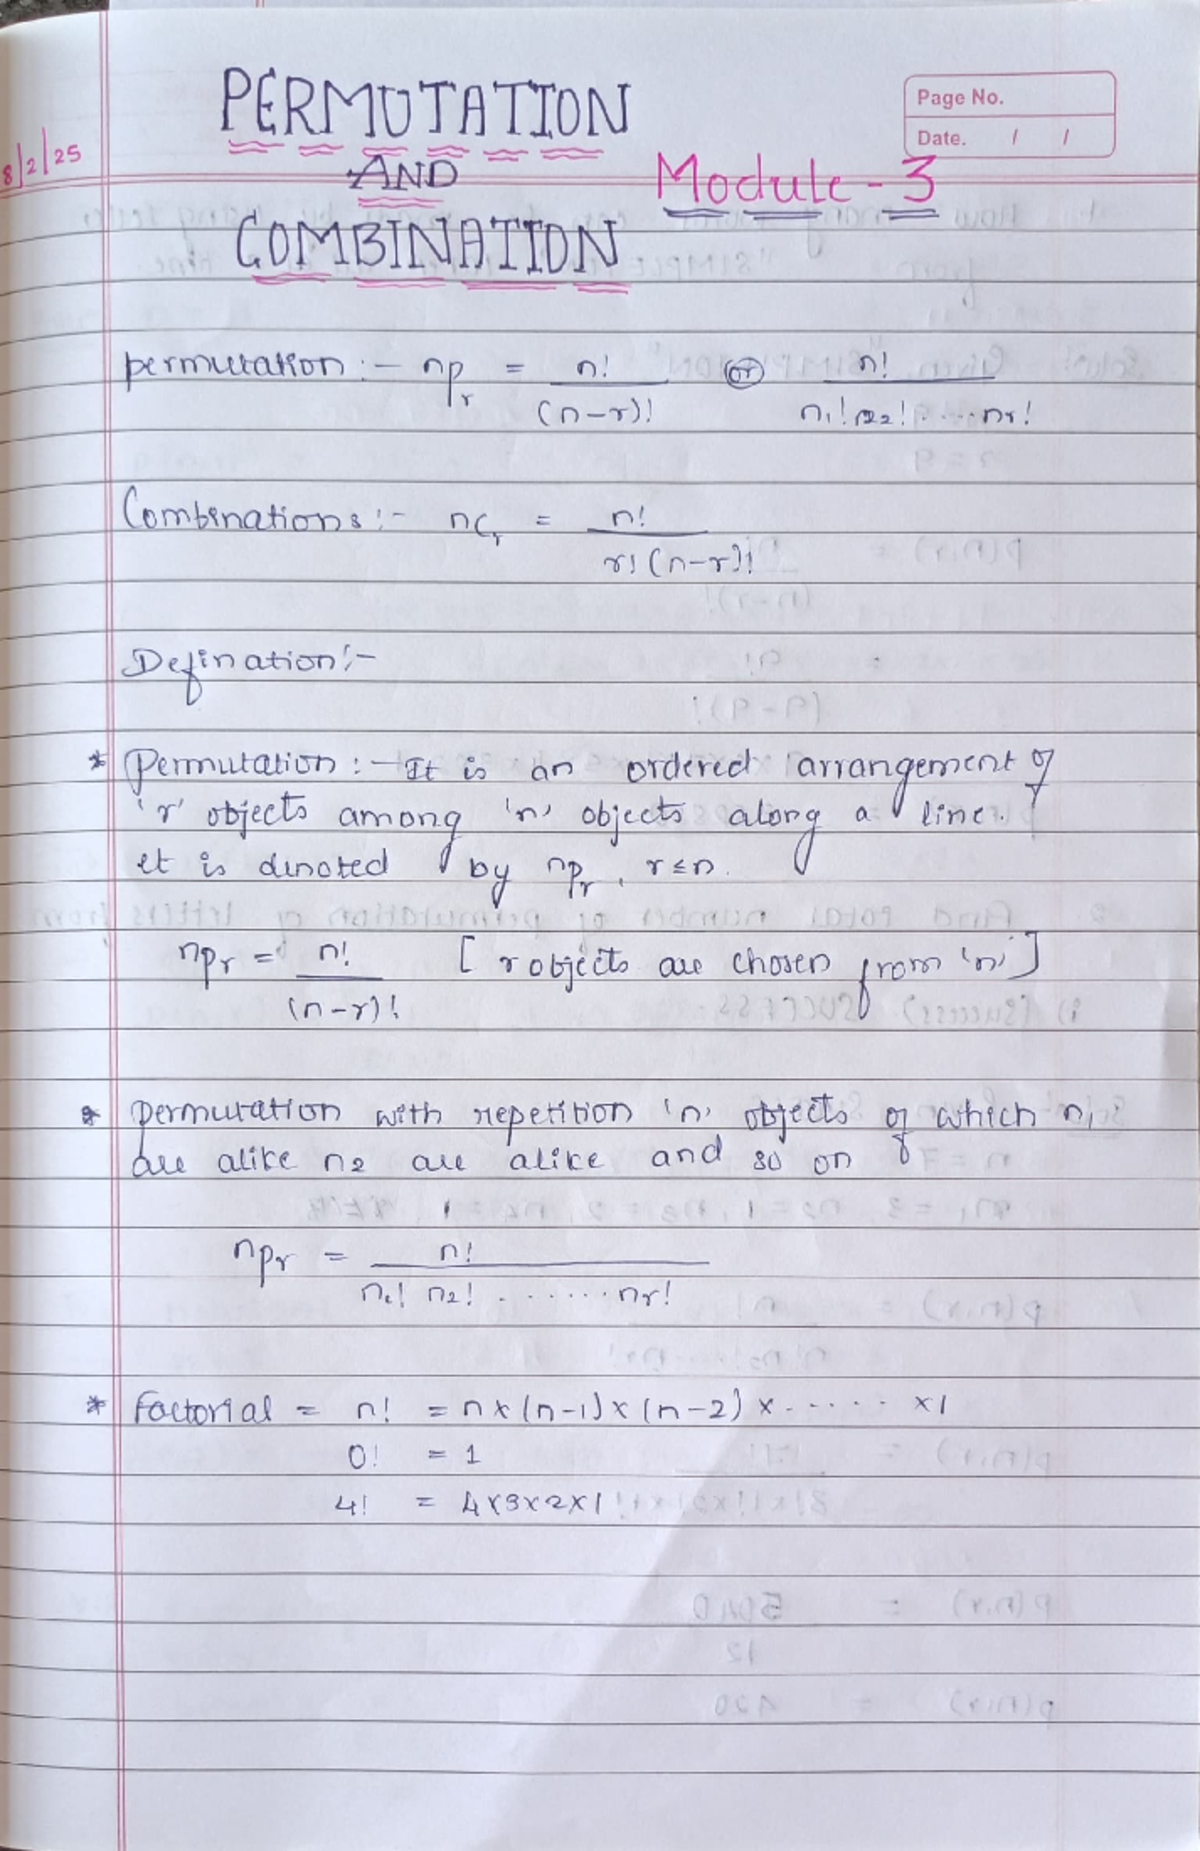 PERMUTATION
Page No.
Date. / /
8/2/25
AND
Module - 3
COMBINATION
permutation :- nPr = n!/(n-r)! or n!/n1! n2! ..... nr!
Combinations :- nCr = n!/r! (n-r)!
Defination :-
* Permutation :- It is an ordered arrangement of
'r' objects among 'n' objects along a line.
it is denoted by nPr, r≤n.
nPr = n!/(n-r)! [ r objects are chosen from 'n' ]
* permutation with repetition 'n' objects of which n1
are alike n2 are alike and so on
nPr = n!/n1! n2! ....... nr!
* Factorial = n! = n x (n-1) x (n-2) x ...... x1
0! = 1
4! = 4x3x2x1